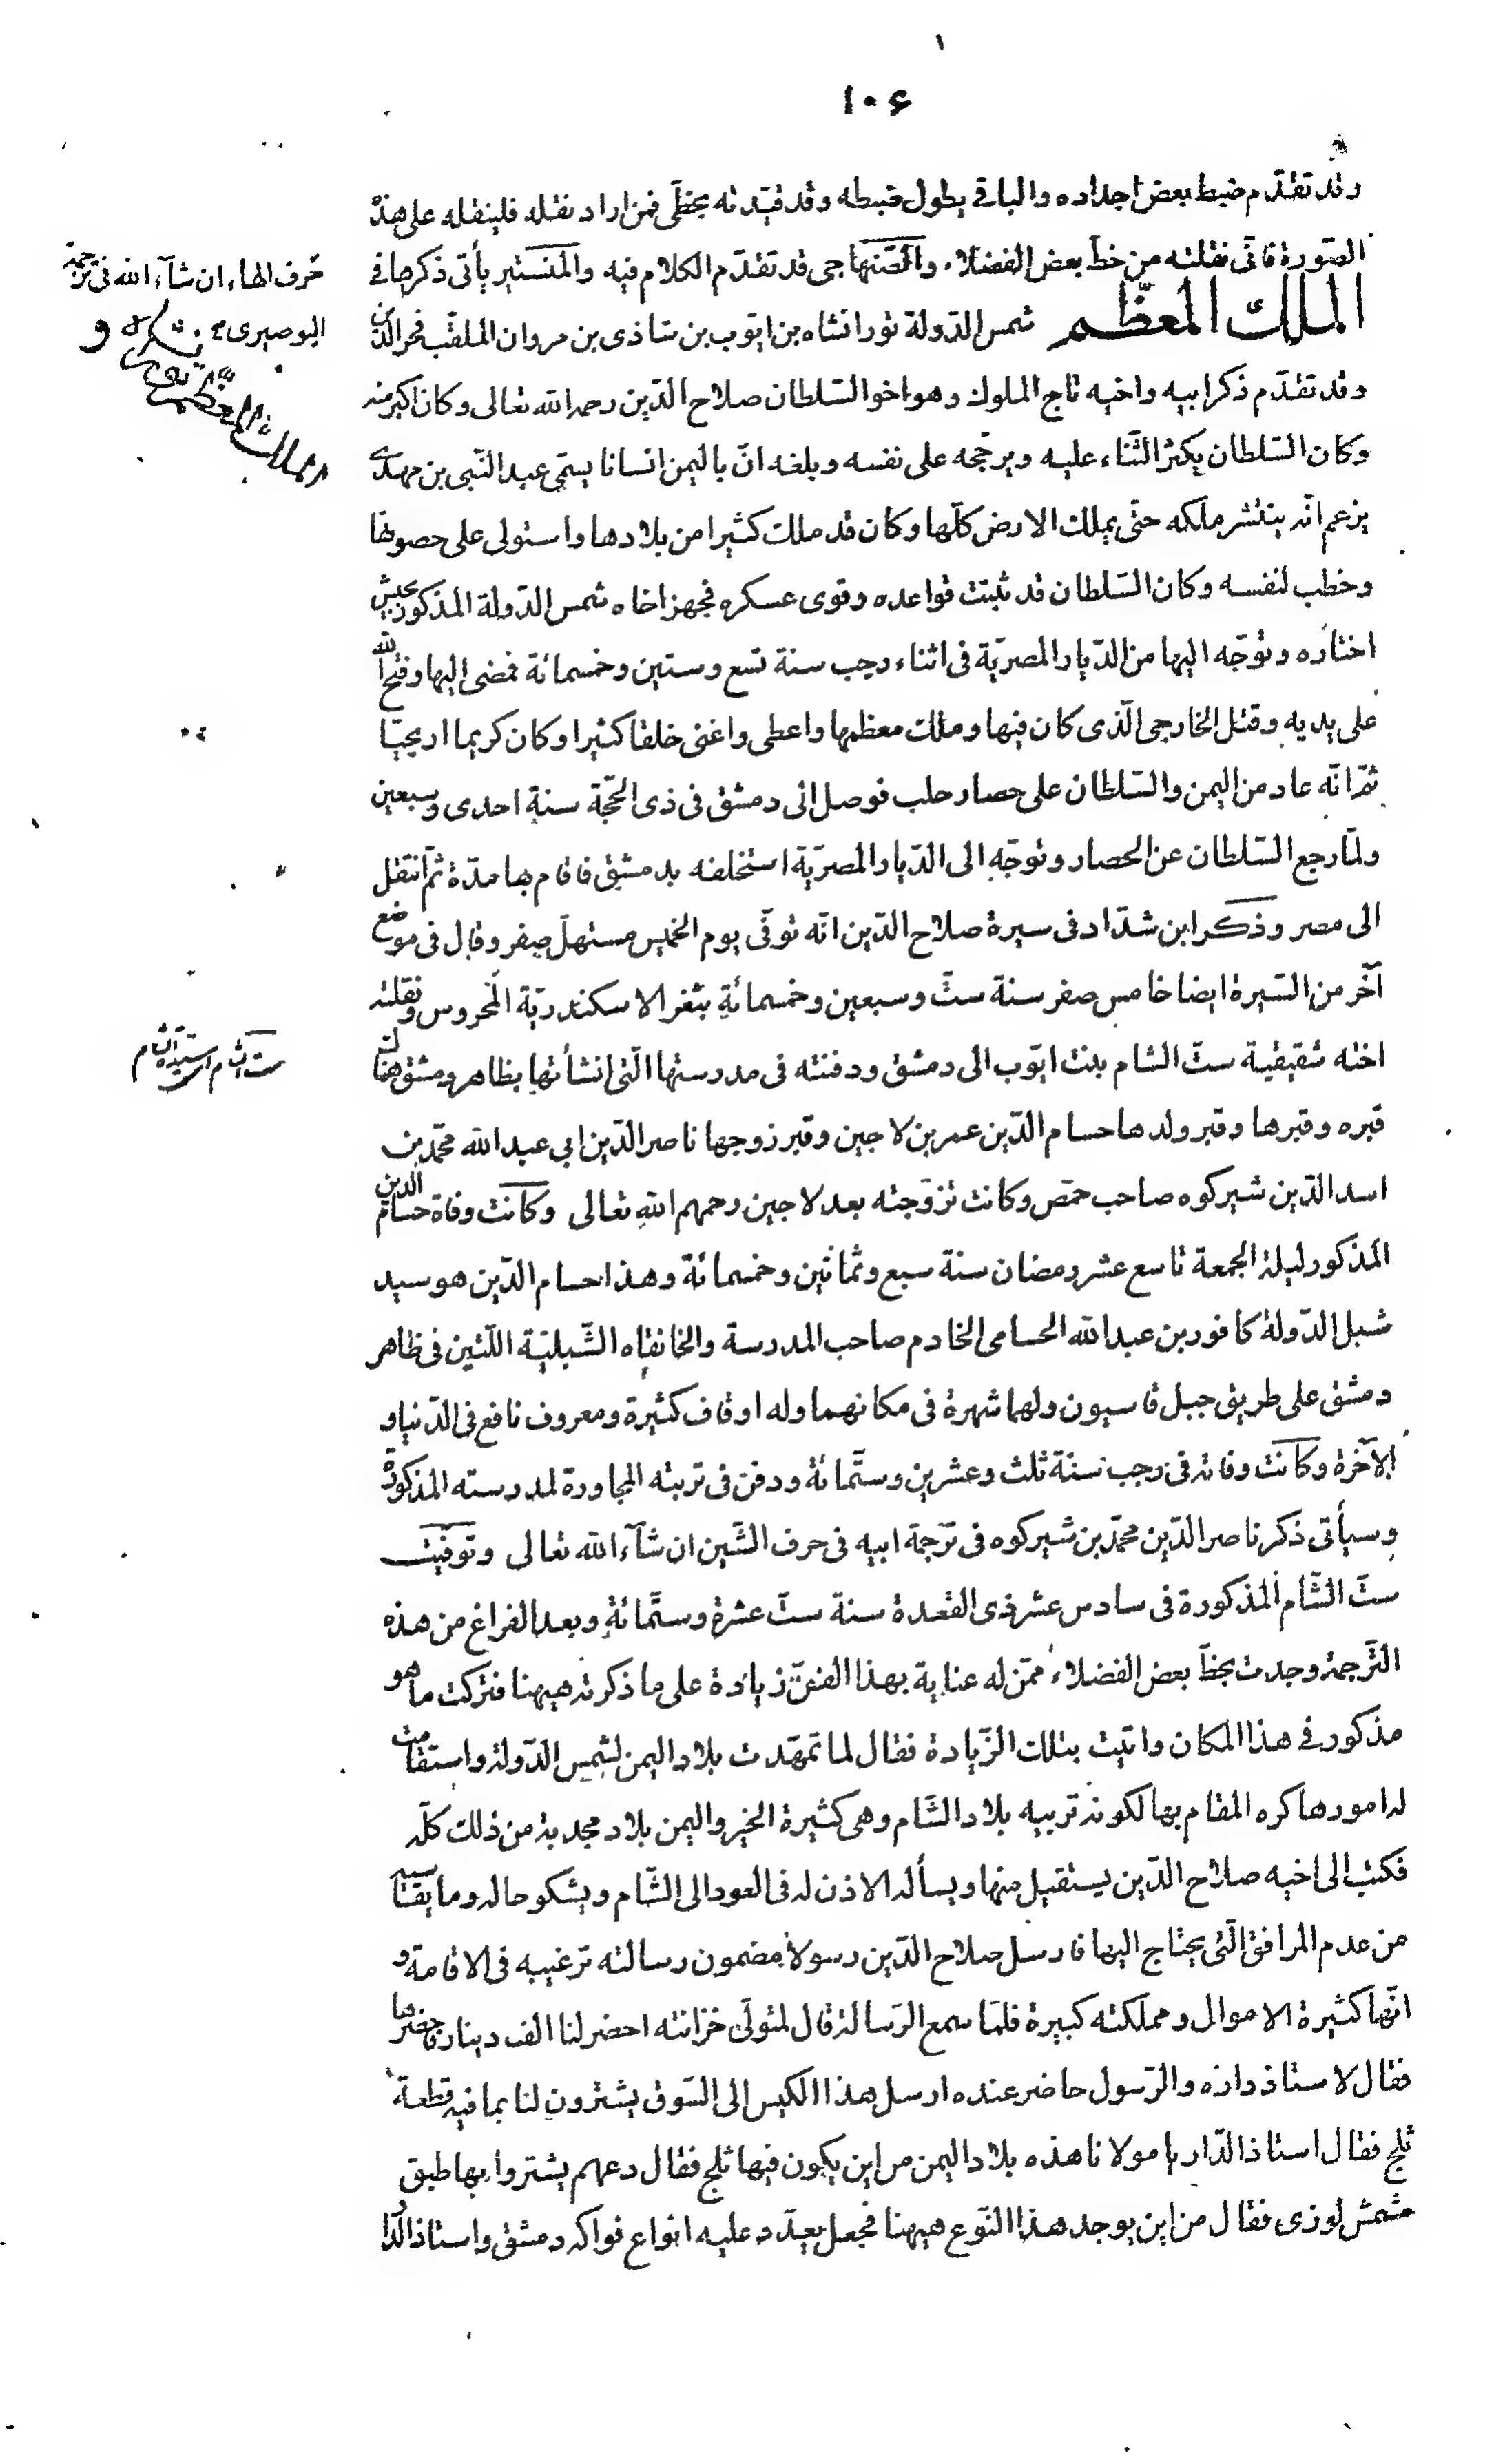 ١٠۶
وقد تقدّم ضبط بعض اجداده والباقى يطول ضبطه وقد قيّدته بخطّى فمن اراد نقله فلينقله على هذه
الصّورة فانّى نقلته من خطّ بعض الفضلاء والصّنهاجى قد تقدّم الكلام فيه والمنستير يأتى ذكرها فى
حرف الهاء ان شآء الله فى ترجمة
البوصيرى
الملك المعظّم شمس الدّولة تورانشاه بن ايّوب بن شاذى بن مروان الملقّب فخر الدّين
وقد تقدّم ذكر ابيه واخيه تاج الملوك وهو اخو السّلطان صلاح الدّين رحمه الله تعالى وكان اكبر منه
وكان السّلطان يكثر الثّناء عليه ويرجّحه على نفسه وبلغه انّ باليمن انسانا يسمّى عبد النّبى بن مهدى
يزعم انّه ينتشر ملكه حتّى يملك الارض كلّها وكان قد ملك كثيرا من بلادها واستولى على حصونها
وخطب لنفسه وكان السّلطان قد ثبتت قواعده وقوى عسكره فجهز اخاه شمس الدّولة المذكور بجيش
اختاره وتوجّه اليها من الدّيار المصريّة فى اثناء رجب سنة تسع وستين وخمسمائة فمضى اليها وفتح الله
على يديه وقتل الخارجى الّذى كان فيها وملك معظمها واعطى واغنى خلقا كثيرا وكان كريما اريحيّا
ثمّ انّه عاد من اليمن والسّلطان على حصار حلب فوصل الى دمشق فى ذى الحجّة سنة احدى وسبعين
ولمّا رجع السّلطان عن الحصار وتوجّه الى الدّيار المصريّة استخلفه بدمشق فاقام بها مدّة ثمّ انتقل
الى مصر وذكر ابن شدّاد فى سيرة صلاح الدّين انّه توفّى يوم الخميس مستهلّ صفر وقال فى موضع
آخر من السّيرة ايضا خامس صفر سنة ستّ وسبعين وخمسمائة بثغر الاسكندريّة المحروس ونقلته
اخته شقيقية ستّ الشام بنت ايّوب الى دمشق ودفنته فى مدرستها الّتى انشأتها بظاهر دمشق هناك
ستّ الشام
قبره وقبرها وقبر ولدها حسام الدّين عمر بن لاجين وقبر زوجها ناصر الدّين ابى عبد الله محمّد بن
اسد الدّين شيركوه صاحب حمص وكانت تزوّجته بعد لاجين رحمهم الله تعالى وكانت وفاة حسام الدين
المذكور ليلة الجمعة تاسع عشر رمضان سنة سبع وثمانين وخمسمائة وهذا حسام الدّين هو سيد
شبل الدّولة كافور بن عبد الله الحسامى الخادم صاحب المدرسة والخانقاه الشّبليّة اللّتين فى ظاهر
دمشق على طريق جبل قاسيون ولهما شهرة فى مكانهما وله اوقاف كثيرة ومعروف نافع فى الدّنيا و
الآخرة وكانت وفاته فى رجب سنة ثلث وعشرين وستّمائة ودفن فى تربته المجاورة لمدرسته المذكورة
وسيأتى ذكر ناصر الدّين محمّد بن شيركوه فى ترجمة ابيه فى حرف الشّين ان شآء الله تعالى وتوفّيت
ستّ الشّام المذكورة فى سادس عشر ذى القعدة سنة ستّ عشرة وستّمائة وبعد الفراغ من هذه
التّرجمة وجدت بخطّ بعض الفضلاء ممّن له عناية بهذا الفنّ زيادة على ما ذكرته هيهنا فتركت ما هو
مذكور فى هذا المكان واتيت بتلك الزّيادة فقال لما تمهّدت بلاد اليمن لشمس الدّولة واستقامت
له امورها كره المقام بها لكونه تربيه بلاد الشّام وهى كثيرة الخير واليمن بلاد مجدبة من ذلك كلّه
فكتب الى اخيه صلاح الدّين يستقيل منها ويسأله الاذن له فى العود الى الشّام ويشكو حاله وما يقاسيه
من عدم المرافق الّتى يحتاج اليها فارسل صلاح الدّين رسولا مضمون رسالته ترغيبه فى الاقامة و
انّها كثيرة الاموال ومملكته كبيرة فلمّا سمع الرّسالة قال لمتولّى خزانته احضر لنا الف دينار فاحضرها
فقال لاستاذ داره والرّسول حاضر عنده ارسل هذا الكيس الى السّوق يشترون لنا بما فيه قطعة
ثلج فقال استاذ الدّار يا مولانا هذه بلاد اليمن من اين يكون فيها ثلج فقال دعهم يشتروا بها طبق
مشمش لوزى فقال من اين يوجد هذا النّوع هيهنا فجعل يعدّد عليه انواع فواكه دمشق واستاذ الدّا